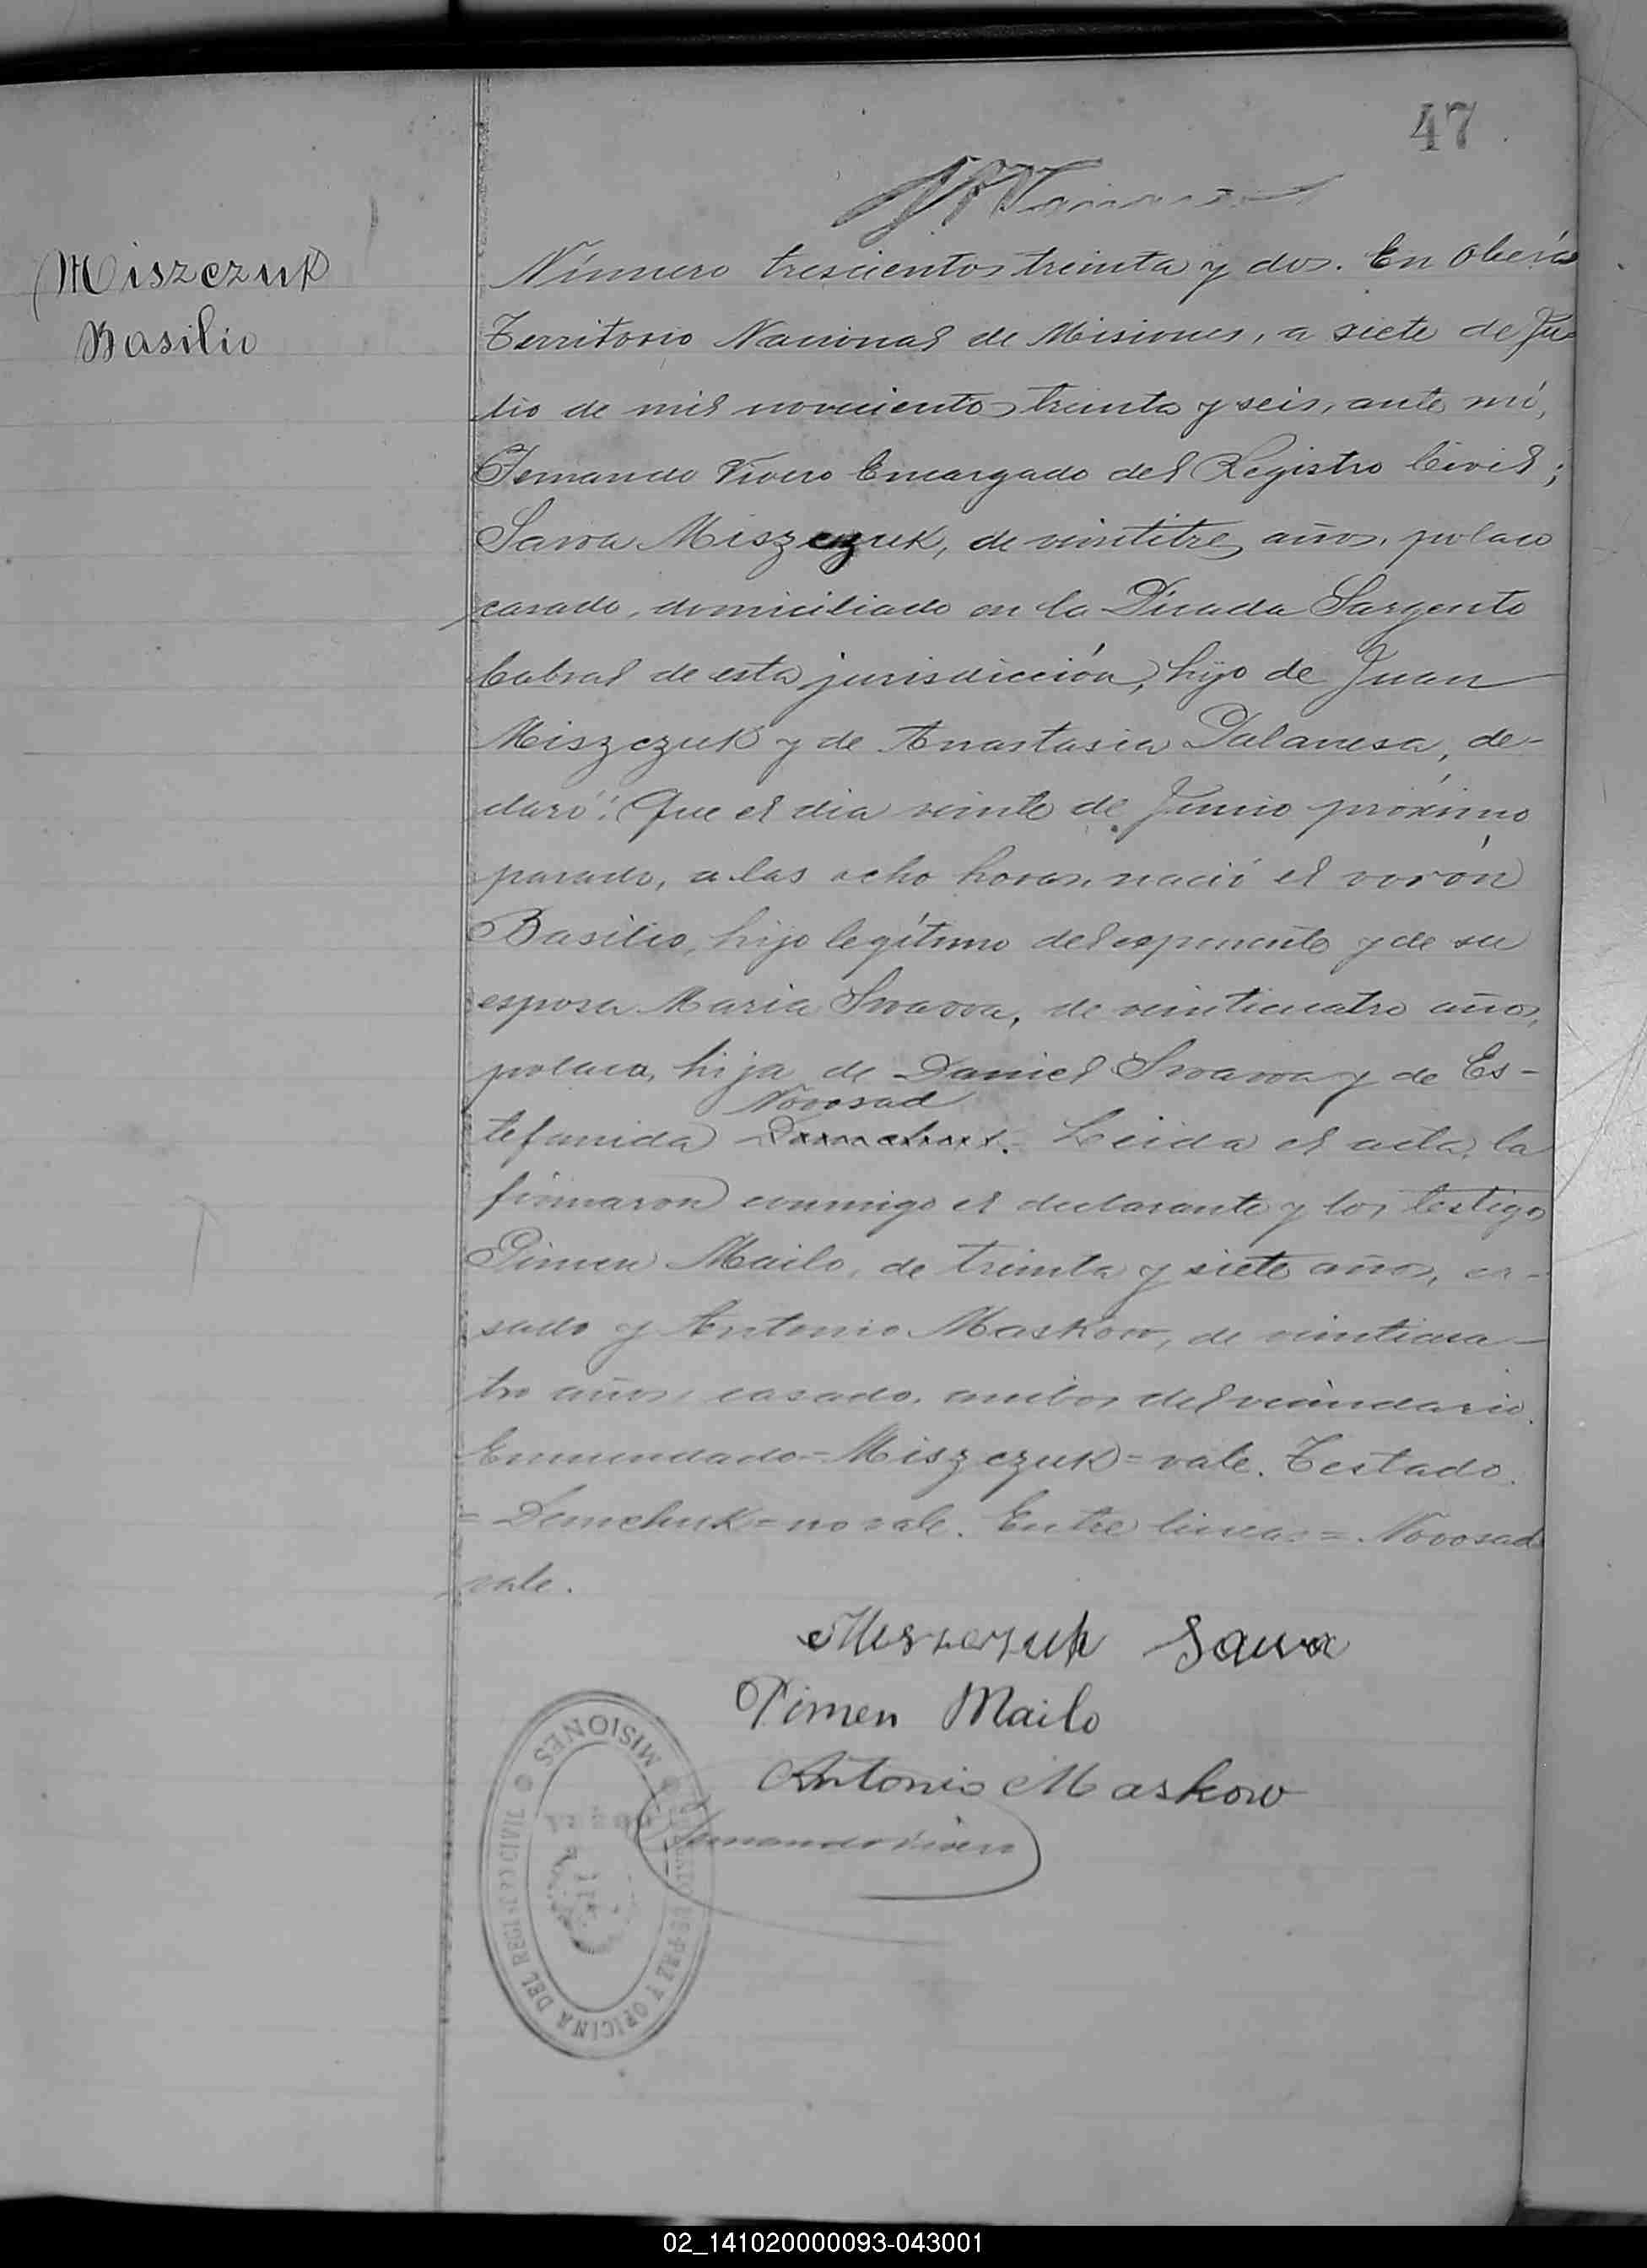 47
Miszczuk
Basilio
Número trescientos treinta y dos. En Oberá
Territorio Nacional de Misiones, a siete de Ju-
lio de mil novecientos treinta y seis, ante mí,
Fernando Vivero Encargado del Registro Civil;
Sawa Miszczuk, de veintitres años, polaco
casado, domiciliado en la Picada Sargento
Cabral de esta jurisdicción, hijo de Juan
Miszczuk y de Anastasia Palanesa, de-
claró: Que el dia veinte de Junio próximo
pasado, a las ocho horas, nació el varón
Basilio, hijo legítimo del exponente y de su
esposa Maria Swawa, de veinticuatro años,
polaca, hija de Daniel Swawa y de Es-
Novosad
tefanida Demchuk. Leida el acta, la
firmaron conmigo el declarante y los testigos
Pimen Mailo, de treinta y siete años, ca-
sado y Antonio Maskow, de veinticua-
tro años, casado, ambos del vecindario.
Enmendado=Miszczuk=vale. Testado.
=Demchuk=no vale. Entre lineas=Novosad
vale.
Miszczuk Sawa
Pimen Mailo
Antonio Maskow
Fernando Vivero
MISIONES
JUZGADO DE PAZ Y OFICINA DEL REGISTRO CIVIL
02_141020000093-043001